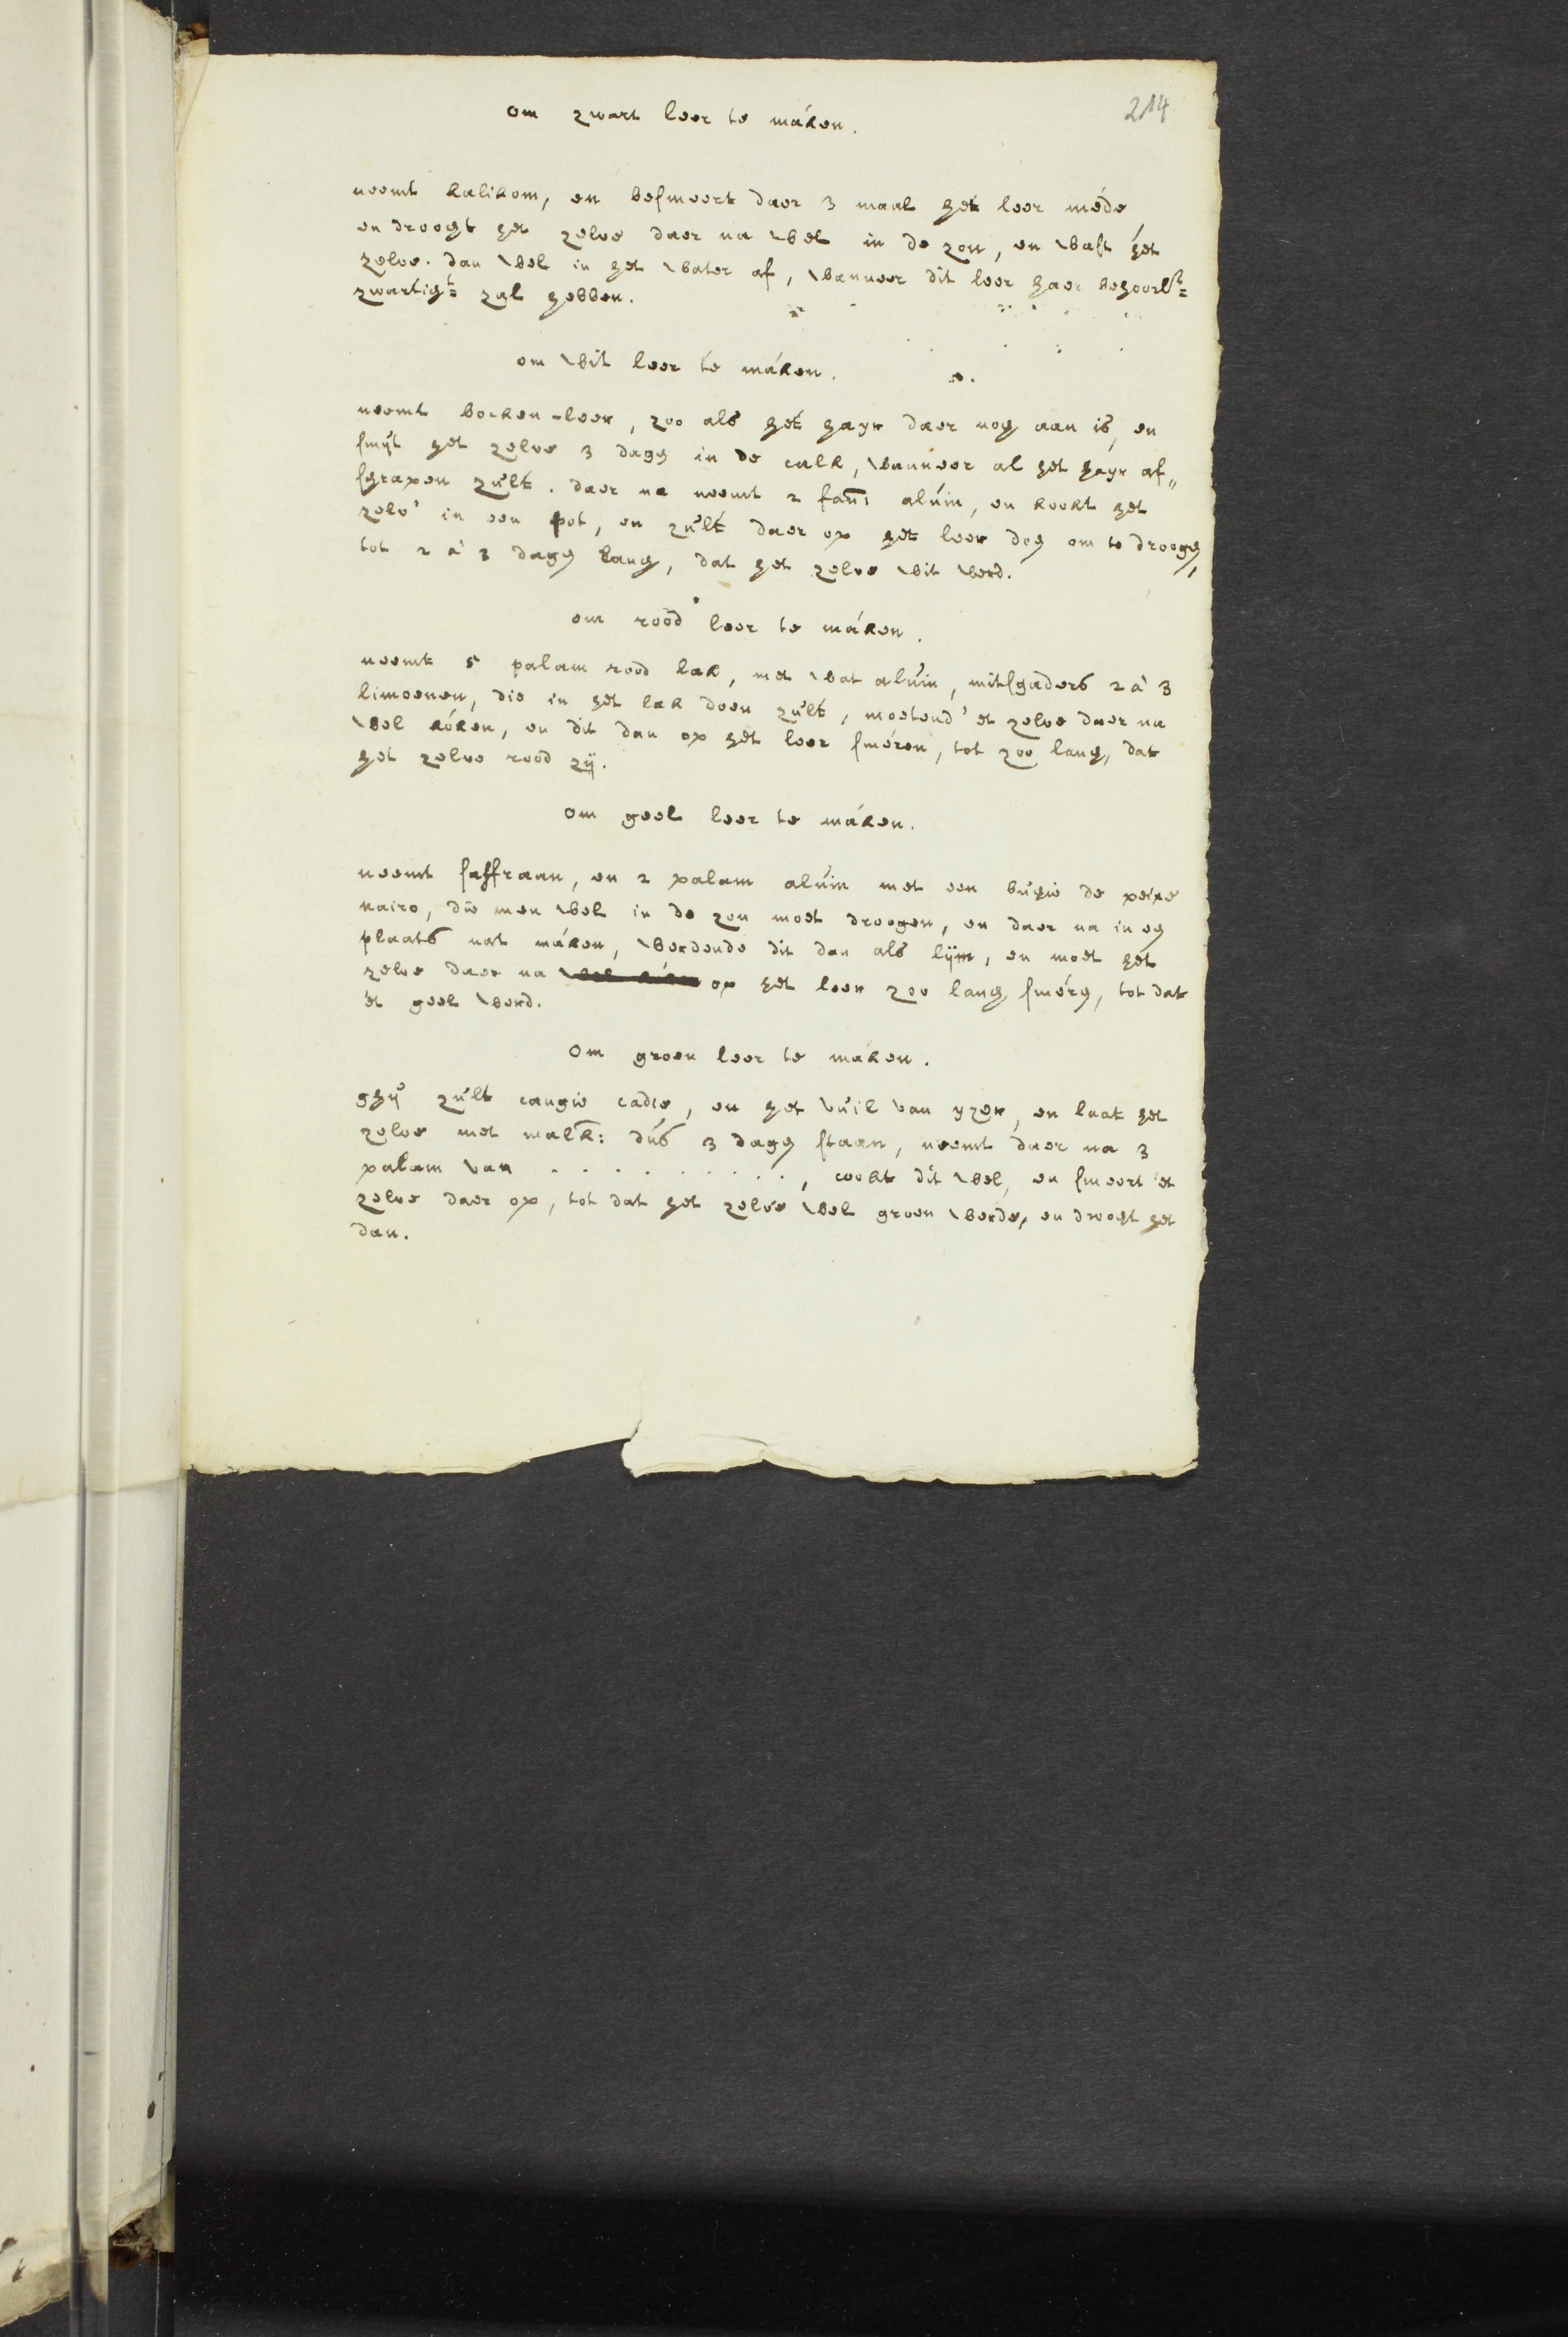 214
om zwart leer te máken.
neemt kalikom, en besmeert daer 3 maal het leer méde
en droogt het zelve daer na wel in de zon, en wast het
zelve. dan wel in het water af, wanneer dit leer haer behoorlk=
zwartight= zal hebben.
om wit leer te máken.
neemt bocken-leer, zoo als het hayr daer nog aan is, en
smyt het zelve 3 dagen in de calk, wanneer al het hayr af„
schrapen zult. daer na neemt 2 fan: aluin, en kookt het
zelv' in een pot, en zult daer op het leer doen om te droogen,
tot 2 à 3 dagen lang, dat het zelve wit werd.
om rood leer te máken.
neemt 5 palam rood lak, met wat aluin, mitsgaders 2 à 3
limoenen, die in het lak doen zult, moetend' et zelve daer na
wel kóken, en dit dan op het leer sméren, tot zoo lang, dat
het zelve rood zij.
om geel leer te máken.
neemt saffraan, en 2 palam aluin met een buchie de peixe
nairo, die men wel in de zon moet droogen, en daer na in een
plaats nat máken, werdende dit dan als lijm, en moet het
zelve daer na op het leer zoo lang sméren, tot dat
'et geel werd.
Om groen leer te máken.
ghy zult cangie cadie, en het vuil van yzer, en laat het
zelve met malk: dus 3 dagen staan, neemt daer na 3
palam van . . . . . . . . ., cookt dit wel, en smeert 'et
zelve daer op, tot dat het zelve wel groen werde, en droogt het
dan.